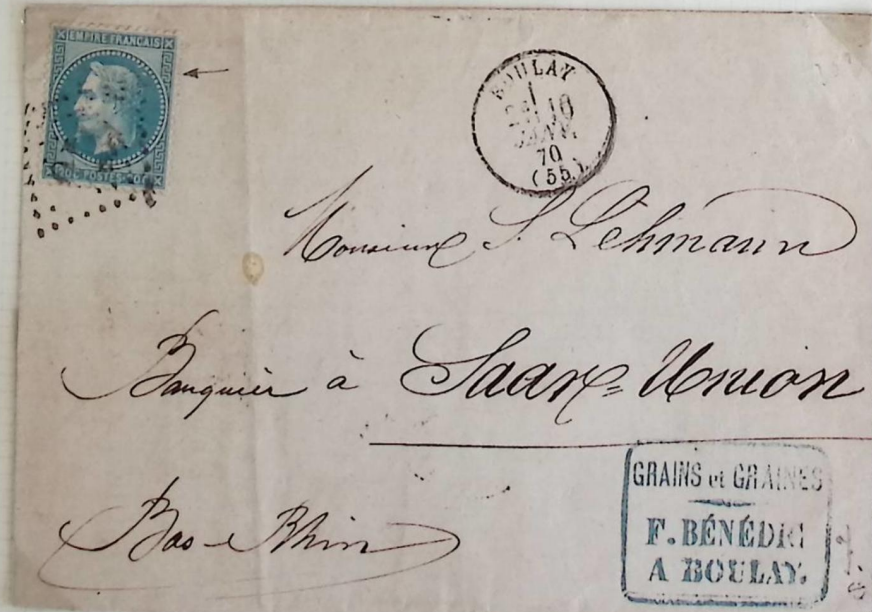 EMPIRE FRANÇAIS
POSTES
BOULAY
1
10
70
(55)
Monsieur S. Lehmann
Banquier à Saar=Union
Bas-Rhin
GRAINS et GRAINES
F. BÉNÉDIC
A BOULAY.